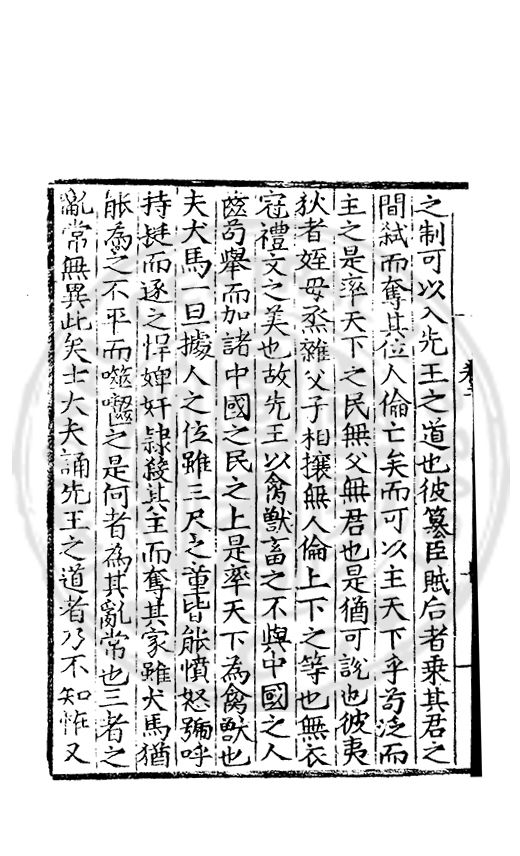 之制可以入先王之道也彼篡臣賊后者乗其君之
間弑而奪其位人倫亡矣而可以主天下乎苟泛而
主之是率天下之民無父無君也是猶可說也彼夷
狄者姪母烝雜父子相攘無人倫上下之等也無衣
冠禮文之美也故先王以禽獸畜之不與中國之人
齒苟舉而加諸中國之民之上是率天下為禽獸也
夫犬馬一旦據人之位雖三尺之童皆能憤怒號呼
持挺而逐之悍婢奸隸殺其主而奪其家雖犬馬猶
能為之不平而噬齧之是何者為其亂常也三者之
亂常無異此矣士大夫誦先王之道者乃不知怪又